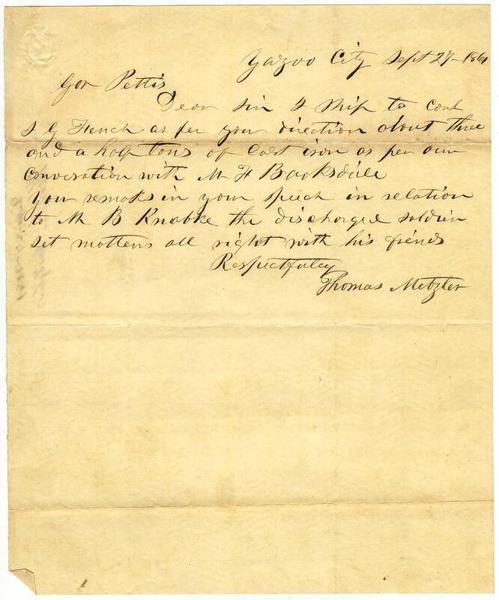 Yazoo City Sept 27 1861
Gov Pettis
Dear Sir I Ship to Conl
S G French as per your direction about three
and a half tons of Cast iron as per our
Conversation with M F Barksdale
Your remarks in your speech in relation
to M B Knabke the discharged soldier
set mattens all right with his friends
Respectfuley
Thomas Metzler